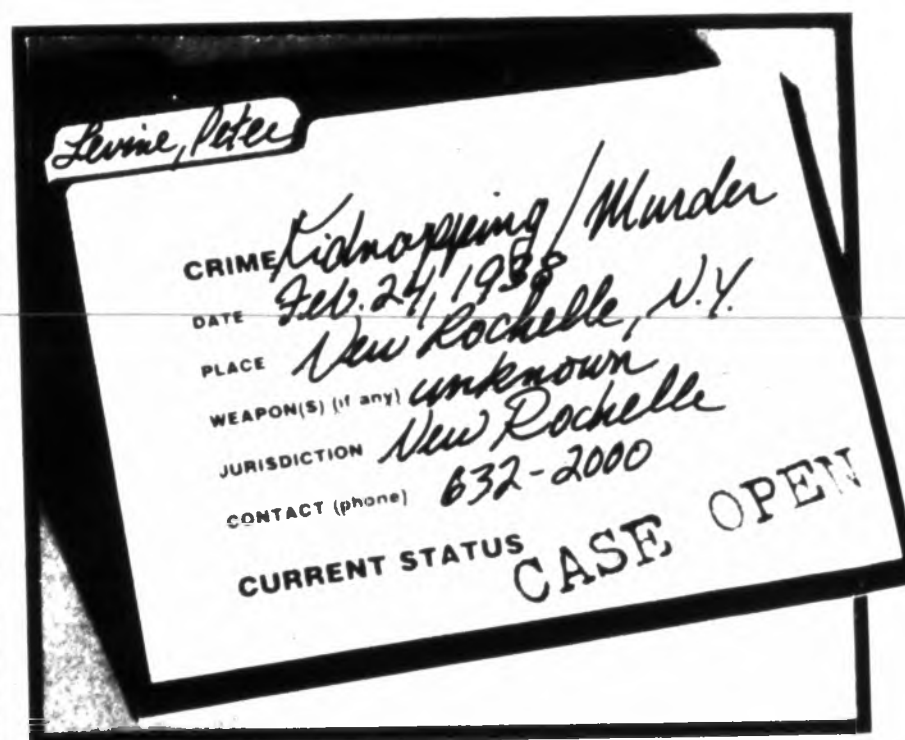 Levine, Peter
CRIME Kidnapping / Murder
DATE Feb. 24, 1938
PLACE New Rochelle, N.Y.
WEAPON(S) (if any) unknown
JURISDICTION New Rochelle
CONTACT (phone) 632-2000
CURRENT STATUS CASE OPEN